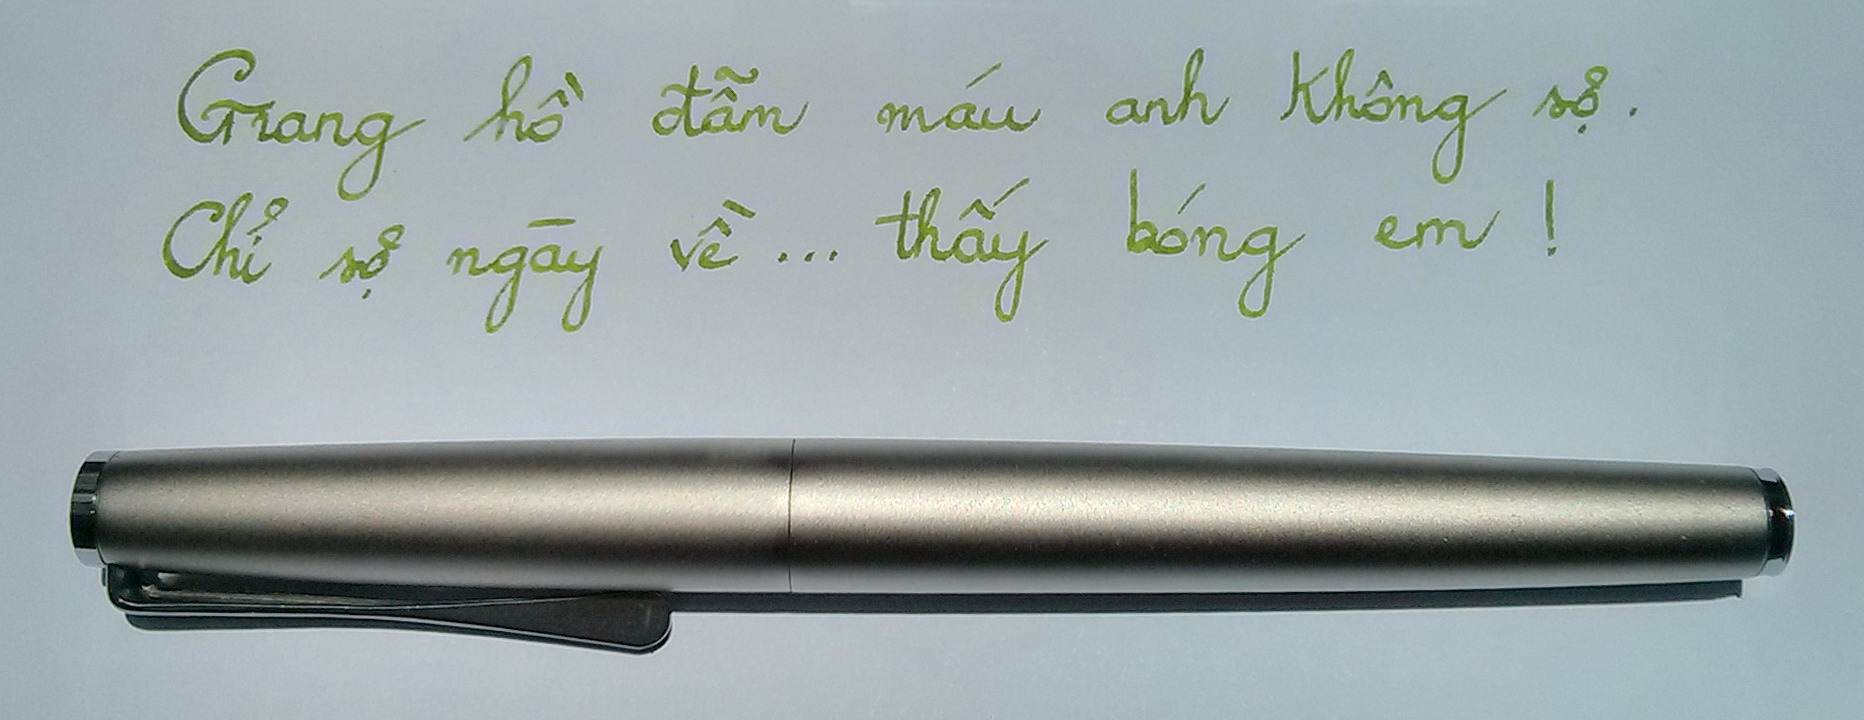 Giang hồ đẫm máu anh Không sợ.
Chỉ sợ ngày về... thấy bóng em !